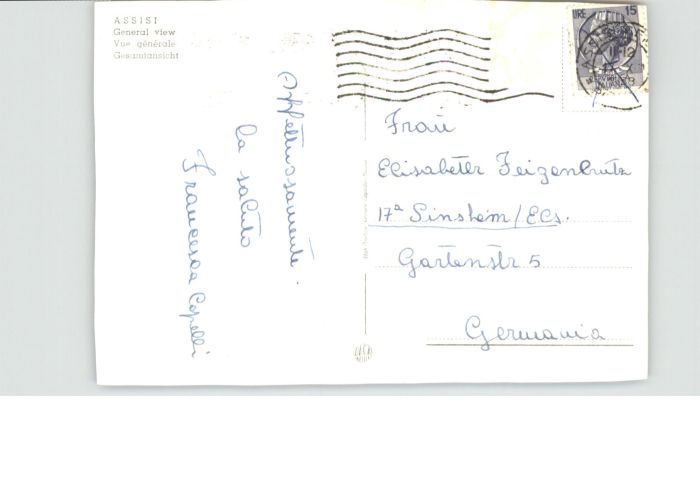 ASSISI
General view
Vue générale
Gesamtansicht
LIRE 15
Affettuosamente.
la saluto
Francesca Capelli
Frau
Elisabeter Feigenbutz
17a Sinsheim/Els.
Gartenstr 5
Germania